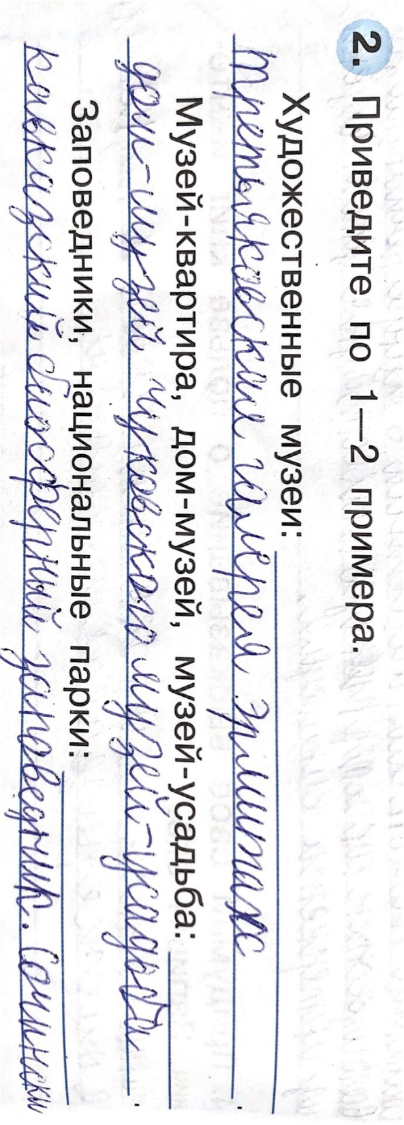 2. Приведите по 1—2 примера.
Художественные музеи:
третьяковские галереи Эрмитаж.
Музей-квартира, дом-музей, музей-усадьба:
дом-музей чуковского музей-усадьба.
Заповедники, национальные парки:
кавказский биосферный заповедник. Сочински